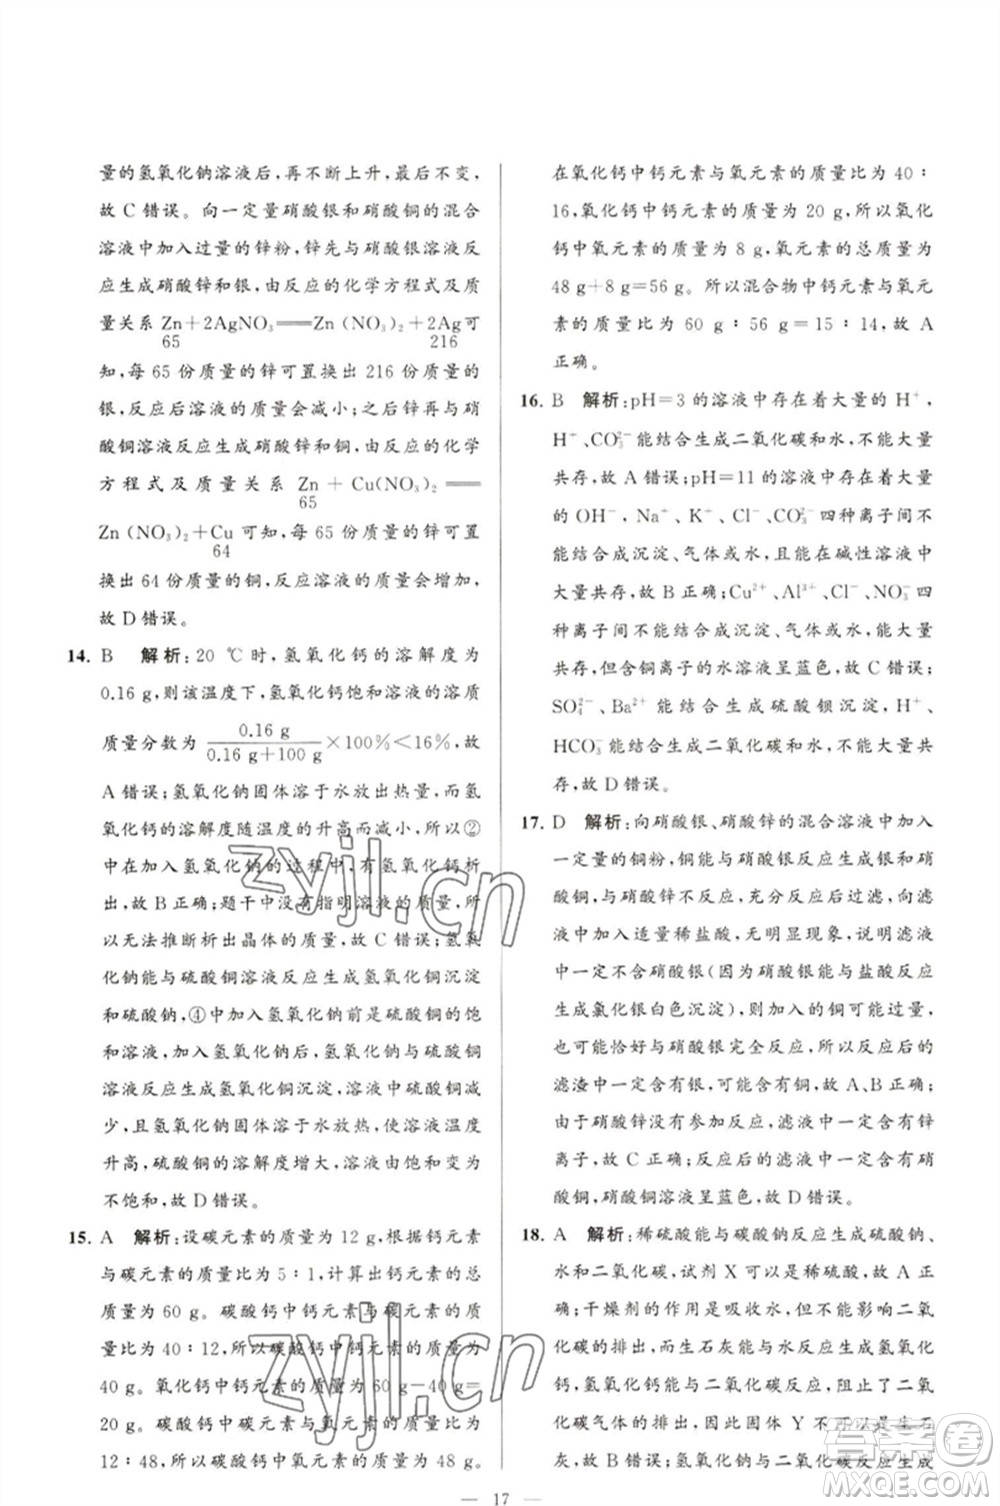 量的氢氧化钠溶液后,再不断上升,最后不变,
故 C 错误。向一定量硝酸银和硝酸铜的混合
溶液中加入过量的锌粉,锌先与硝酸银溶液反
应生成硝酸锌和银,由反应的化学方程式及质
量关系 Zn+2AgNO₃══Zn(NO₃)₂+2Ag可
65 216
知,每 65 份质量的锌可置换出 216 份质量的
银,反应后溶液的质量会减小;之后锌再与硝
酸铜溶液反应生成硝酸锌和铜,由反应的化学
方程式及质量关系 Zn + Cu(NO₃)₂ ══
65
Zn(NO₃)₂+Cu 可知,每 65 份质量的锌可置
64
换出 64 份质量的铜,反应溶液的质量会增加,
故 D 错误。
14. B 解析:20 ℃时,氢氧化钙的溶解度为
0.16 g,则该温度下,氢氧化钙饱和溶液的溶质
质量分数为 0.16 g/(0.16 g+100 g)×100%<16%,故
A 错误;氢氧化钠固体溶于水放出热量,而氢
氧化钙的溶解度随温度的升高而减小,所以②
中在加入氢氧化钠的过程中,有氢氧化钙析
出,故 B 正确;题干中没有指明溶液的质量,所
以无法推断析出晶体的质量,故 C 错误;氢氧
化钠能与硫酸铜溶液反应生成氢氧化铜沉淀
和硫酸钠,④中加入氢氧化钠前是硫酸铜的饱
和溶液,加入氢氧化钠后,氢氧化钠与硫酸铜
溶液反应生成氢氧化铜沉淀,溶液中硫酸铜减
少,且氢氧化钠固体溶于水放热,使溶液温度
升高,硫酸铜的溶解度增大,溶液由饱和变为
不饱和,故 D 错误。
15. A 解析:设碳元素的质量为 12 g,根据钙元素
与碳元素的质量比为 5∶1,计算出钙元素的总
质量为 60 g。碳酸钙中钙元素与碳元素的质
量比为 40∶12,所以碳酸钙中钙元素的质量为
40 g。氧化钙中钙元素的质量为 60 g-40 g=
20 g。碳酸钙中碳元素与氧元素的质量比为
12∶48,所以碳酸钙中氧元素的质量为 48 g。
在氧化钙中钙元素与氧元素的质量比为 40∶
16,氧化钙中钙元素的质量为 20 g,所以氧化
钙中氧元素的质量为 8 g,氧元素的质量为
48 g+8 g=56 g。所以混合物中钙元素与氧元
素的质量比为 60 g∶56 g=15∶14,故 A
正确。
16. B 解析:pH=3 的溶液中存在着大量的 H⁺,
H⁺、CO₃²⁻能结合生成二氧化碳和水,不能大量
共存,故 A 错误;pH=11 的溶液中存在着大量
的 OH⁻,Na⁺、K⁺、Cl⁻、CO₃²⁻四种离子间不
能结合成沉淀、气体或水,且能在碱性溶液中
大量共存,故 B 正确;Cu²⁺、Al³⁺、Cl⁻、NO₃⁻ 四
种离子间不能结合成沉淀、气体或水,能大量
共存,但含铜离子的水溶液呈蓝色,故 C 错误;
SO₄²⁻、Ba²⁺ 能结合生成硫酸钡沉淀,H⁺、
HCO₃⁻能结合生成二氧化碳和水,不能大量共
存,故 D 错误。
17. D 解析:向硝酸银、硝酸锌的混合溶液中加入
一定量的铜粉,铜能与硝酸银反应生成银和硝
酸铜,铜与硝酸锌不反应,充分反应后过滤,向滤
液中加入适量稀盐酸,无明显现象,说明滤液
中一定不含硝酸银(因为硝酸银能与盐酸反应
生成氯化银白色沉淀),则加入的铜可能过量,
也可能恰好与硝酸银完全反应,所以反应后的
滤渣中一定含有银,可能含有铜,故 A、B 错误;
由于硝酸锌没有参加反应,滤液中一定含有锌
离子,故 C 正确;反应后的溶液中一定含有硝
酸铜,硝酸铜溶液呈蓝色,故 D 错误。
18. A 解析:稀硫酸能与碳酸钠反应生成硫酸钠、
水和二氧化碳,试剂 X 可以是稀硫酸,故 A 正
确;干燥剂的作用是吸收水,不能影响二氧化
碳的排出,而生石灰能与水反应生成氢氧化
钙,氢氧化钙能与二氧化碳反应,阻止了二氧
化碳气体的排出,因此固体 Y 不可以是生石
灰,故 B 错误;氢氧化钠与二氧化碳反应生成
zyjl.cn
zyjl.cn
答案圈
MXQE.COM
— 17 —